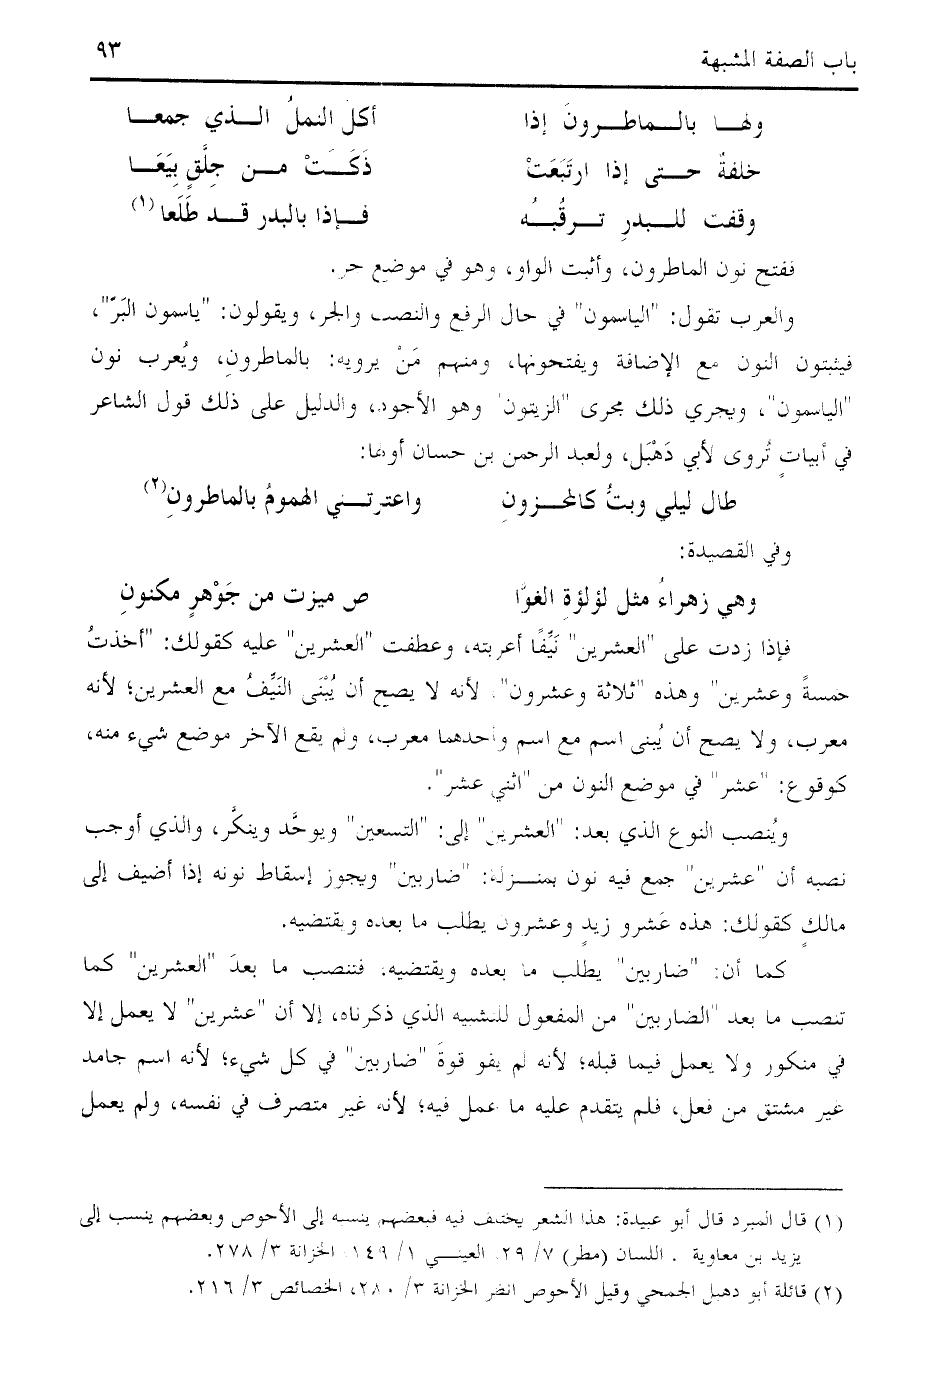 باب الصفة المشبهة ٩٣
ولهـــا بالـــماطـــرونَ إذا أكل النملُ الـــذي جمعـــا
خلفةٌ حـــتى إذا ارتَبَعَتْ ذَكَـــتْ مـــن جِلَّقٍ بِيَعَـــا
وقفت للـــبدرِ تـــرقُبُـــه فـــإذا بالبدر قـــد طَلَعا (١)
ففتح نون الماطرون، وأثبت الواو، وهو في موضع جر.
والعرب تقول: "الياسمون" في حال الرفع والنصب والجر، ويقولون: "ياسمون البَرّ"،
فيثبتون النون مع الإضافة ويفتحونها، ومنهم مَنْ يرويه: بالماطرونِ، ويُعرب نون
"الياسمون"، ويجري ذلك مجرى "الزيتون" وهو الأجود، والدليل على ذلك قول الشاعر
في أبياتٍ تُروى لأبي دَهْبَل، ولعبد الرحمن بن حسان أولها:
طال ليلي وبتُ كالمحـــزونِ واعترتـــني الهمومُ بالماطرونِ (٢)
وفي القصيدة:
وهي زهراءُ مثل لؤلؤةِ الغوَّا ص ميزت من جَوْهرٍ مكنونِ
فإذا زدت على "العشرين" نَيِّفًا أعربته، وعطفت "العشرين" عليه كقولك: "أخذتُ
خمسةً وعشرين" وهذه "ثلاثة وعشرون"، لأنه لا يصح أن يُبْنَى النَيِّفُ مع العشرين؛ لأنه
معرب، ولا يصح أن يُبنى اسم مع اسم وأحدهما معرب، ولم يقع الآخر موضع شيء منه،
كوقوع: "عشر" في موضع النون من "اثني عشر".
ويُنصب النوع الذي بعد: "العشرين" إلى: "التسعين" ويوحَّد وينكَّر، والذي أوجب
نصبه أن "عشرين" جمع فيه نون بمنـــزلة: "ضاربين" ويجوز إسقاط نونه إذا أضيف إلى
مالكٍ كقولك: هذه عَشرو زيدٍ وعشرون يطلب ما بعده ويقتضيه.
كما أن: "ضاربين" يطلب ما بعده ويقتضيه، فتنصب ما بعدَ "العشرين" كما
تنصب ما بعد "الضاربين" من المفعول للتشبيه الذي ذكرناه، إلا أن "عشرين" لا يعمل إلا
في منكور ولا يعمل فيما قبله؛ لأنه لم يقو قوةَ "ضاربين" في كل شيء؛ لأنه اسم جامد
غير مشتق من فعل، فلم يتقدم عليه ما عمل فيه؛ لأنه غير متصرف في نفسه، ولم يعمل
(١) قال المبرد قال أبو عبيدة: هذا الشعر يختلف فيه فبعضهم ينسبه إلى الأحوص وبعضهم ينسب إلى
يزيد بن معاوية . اللسان (مطر) ٧/ ٢٩، العينـــي ١/ ١٤٩، الخزانة ٣/ ٢٧٨.
(٢) قائلة أبو دهبل الجمحي وقيل الأحوص انظر الخزانة ٣/ ٢٨٠، الخصائص ٣/ ٢١٦.